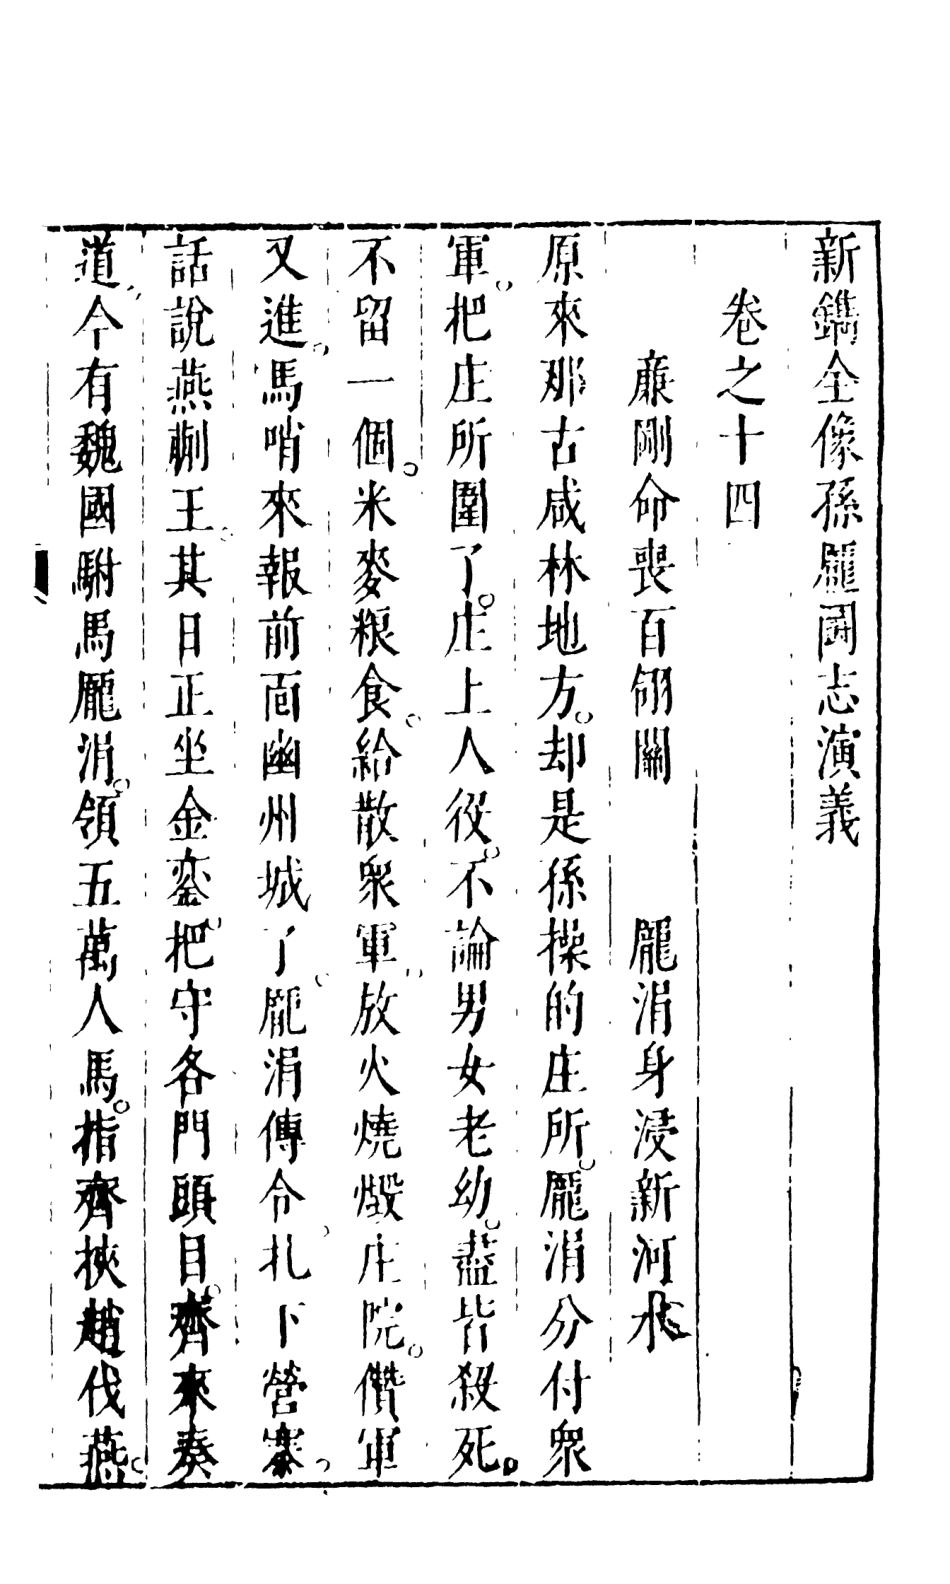 新鐫全像孫龐鬪志演義
卷之十四
廉剛命喪百翎關　龐涓身浸新河水
原來那古咸林地方。却是孫操的庄所。龐涓分付衆
軍。把庄所圍了。庄上人役。不論男女老幼。盡皆殺死。
不留一個。米麥粮食。給散衆軍。放火燒燬庄院。儹軍
又進。馬哨來報前面幽州城了。龐涓傳令。扎下營寨。
話說燕𠛬王。其日正坐金鑾。把守各門頭目。齊來奏
道。今有魏國駙馬龐涓。領五萬人馬。指齊挾趙伐燕。